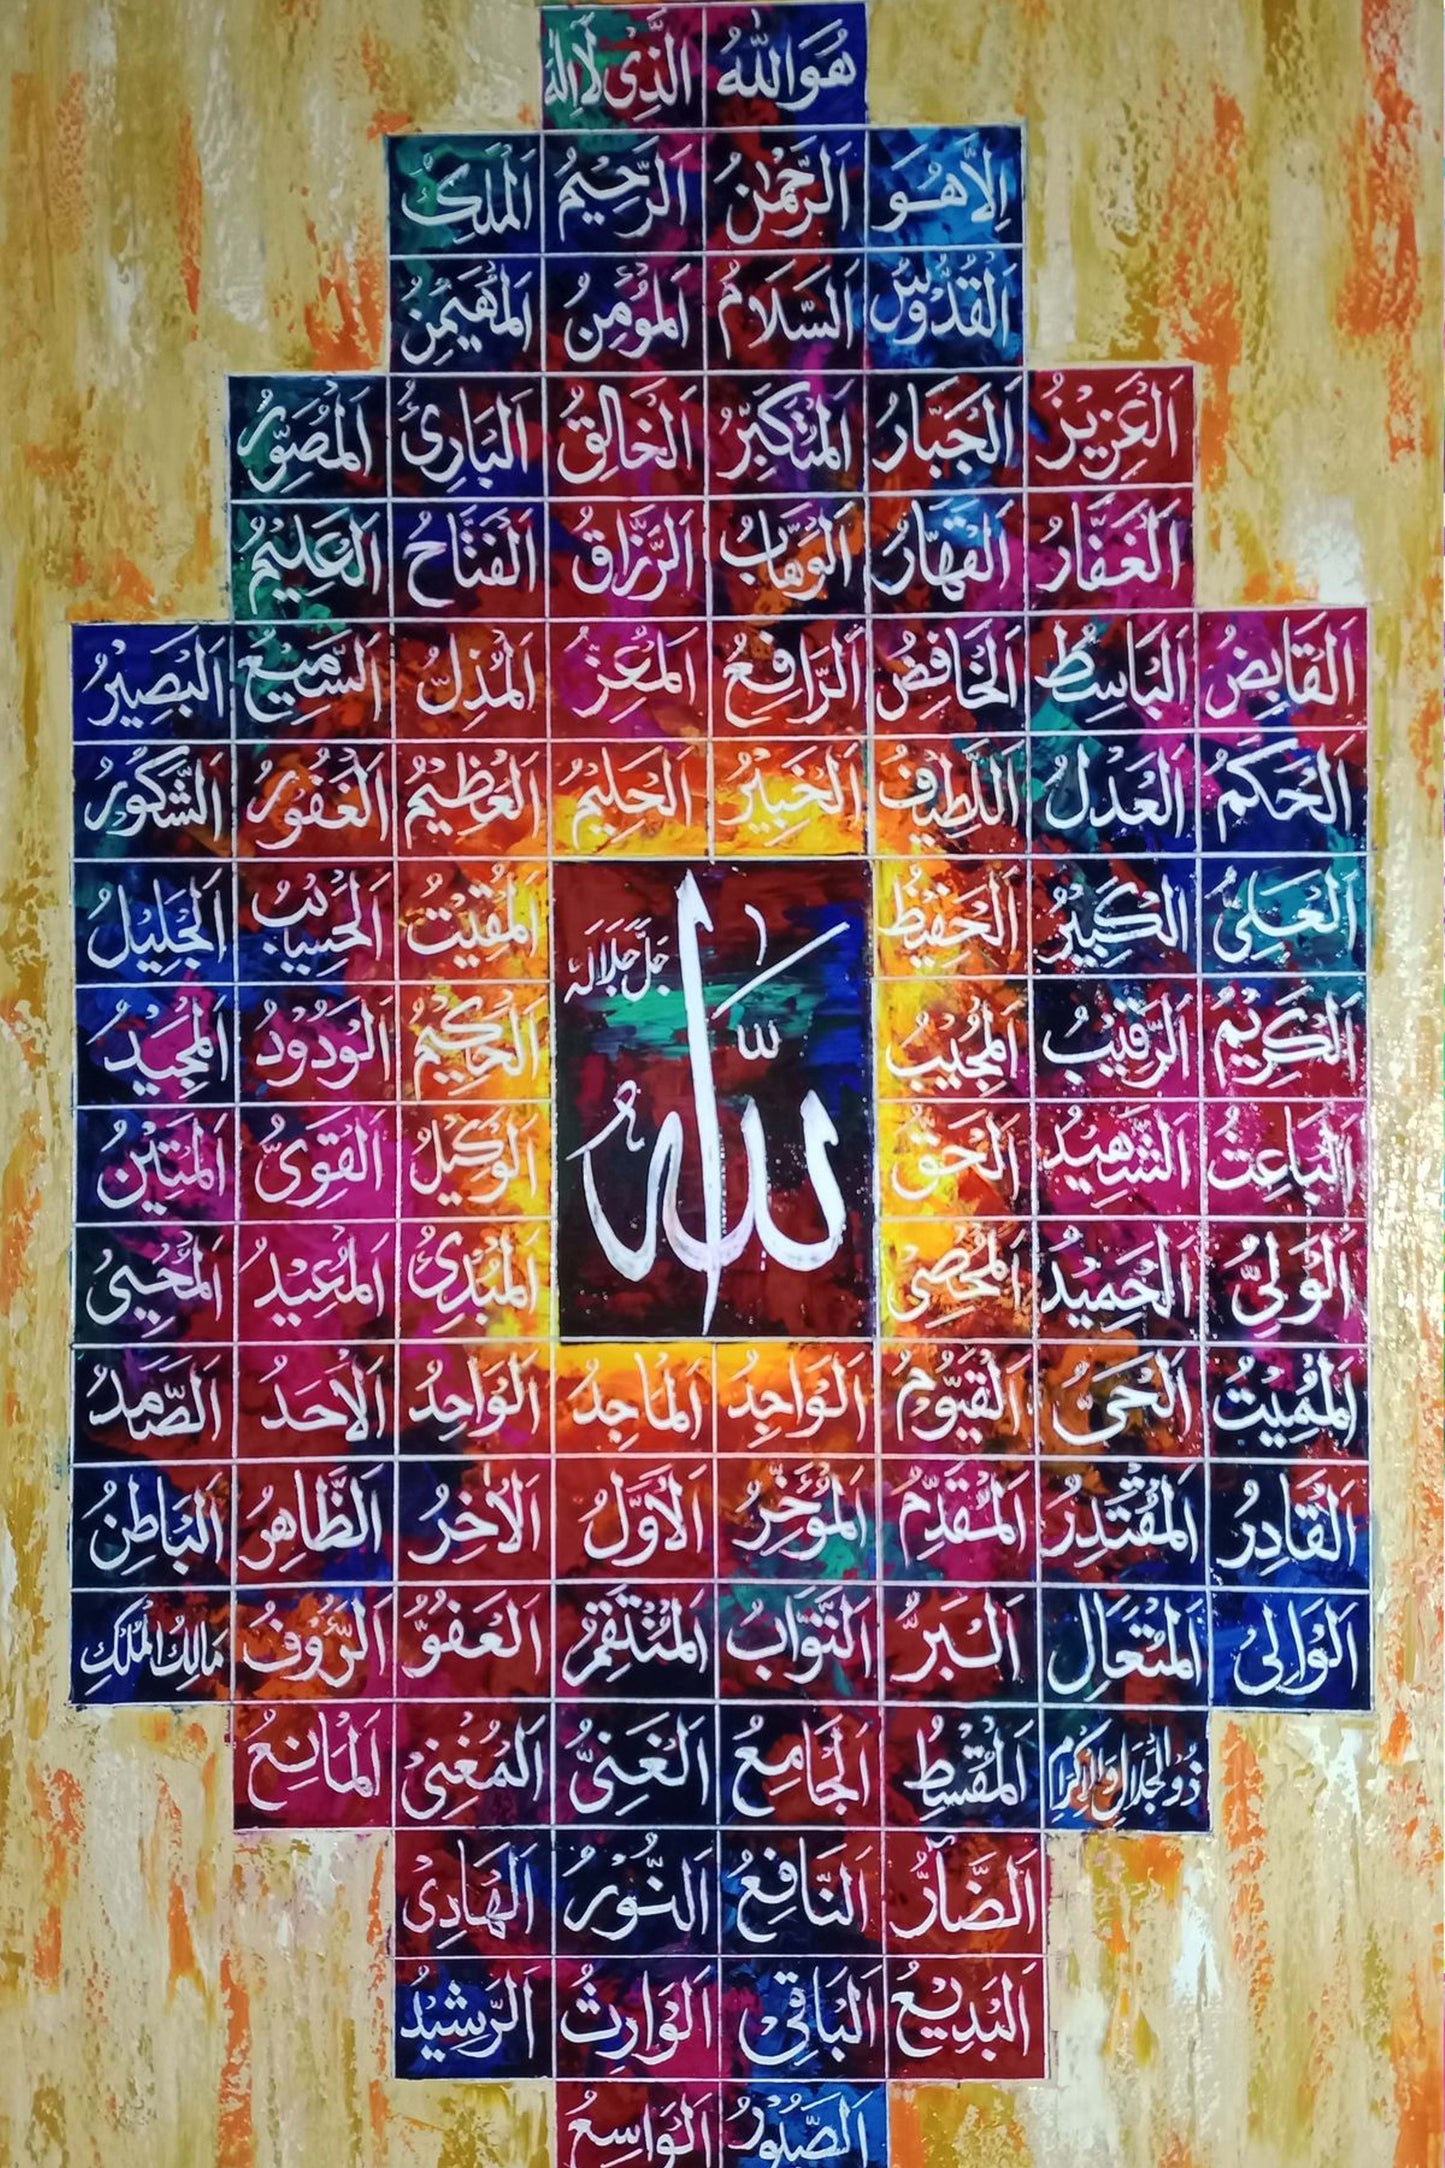 هُوَاللهُ الَّذِىْ لَااِلٰهَ
اِلَّاهُوَ اَلرَّحْمٰنُ اَلرَّحِيْمُ اَلْمَلِكُ
اَلْقُدُّوْسُ اَلسَّلَامُ اَلْمُؤْمِنُ اَلْمُهَيْمِنُ
اَلْعَزِيْزُ اَلْجَبَّارُ اَلْمُتَكَبِّرُ اَلْخَالِقُ اَلْبَارِئُ اَلْمُصَوِّرُ
اَلْغَفَّارُ اَلْقَهَّارُ اَلْوَهَّابُ اَلرَّزَّاقُ اَلْفَتَّاحُ اَلْعَلِيْمُ
اَلْقَابِضُ اَلْبَاسِطُ اَلْخَافِضُ اَلرَّافِعُ اَلْمُعِزُّ اَلْمُذِلُّ اَلسَّمِيْعُ اَلْبَصِيْرُ
اَلْحَكَمُ اَلْعَدْلُ اَللَّطِيْفُ اَلْخَبِيْرُ اَلْحَلِيْمُ اَلْعَظِيْمُ اَلْغَفُوْرُ اَلشَّكُوْرُ
اَلْعَلِىُّ اَلْكَبِيْرُ اَلْحَفِيْظُ اَلْمُقِيْتُ اَلْحَسِيْبُ اَلْجَلِيْلُ
اَلْكَرِيْمُ اَلرَّقِيْبُ اَلْمُجِيْبُ اَلْحَكِيْمُ اَلْوَدُوْدُ اَلْمَجِيْدُ
اَلْبَاعِثُ اَلشَّهِيْدُ اَلْحَقُّ اَلْوَكِيْلُ اَلْقَوِىُّ اَلْمَتِيْنُ
اَلْوَلِىُّ اَلْحَمِيْدُ اَلْمُحْصِىْ اَلْمُبْدِئُ اَلْمُعِيْدُ اَلْمُحْيِىْ
الله جَلَّ جَلَالَهٗ
اَلْمُمِيْتُ اَلْحَىُّ اَلْقَيُّوْمُ اَلْوَاجِدُ اَلْمَاجِدُ اَلْوَاحِدُ اَلْاَحَدُ اَلصَّمَدُ
اَلْقَادِرُ اَلْمُقْتَدِرُ اَلْمُقَدِّمُ اَلْمُؤَخِّرُ اَلْاَوَّلُ اَلْاٰخِرُ اَلظَّاهِرُ اَلْبَاطِنُ
اَلْوَالِىْ اَلْمُتَعَالِ اَلْبَرُّ اَلتَّوَّابُ اَلْمُنْتَقِمُ اَلْعَفُوُّ اَلرَّؤُوْفُ مَالِكُ الْمُلْكِ
ذُوالْجَلَالِ وَالْاِكْرَامِ اَلْمُقْسِطُ اَلْجَامِعُ اَلْغَنِىُّ اَلْمُغْنِىْ اَلْمَانِعُ
اَلضَّآرُّ اَلنَّافِعُ اَلنُّوْرُ اَلْهَادِىْ
اَلْبَدِيْعُ اَلْبَاقِىْ اَلْوَارِثُ اَلرَّشِيْدُ
اَلصَّبُوْرُ اَلْوَاسِعُ